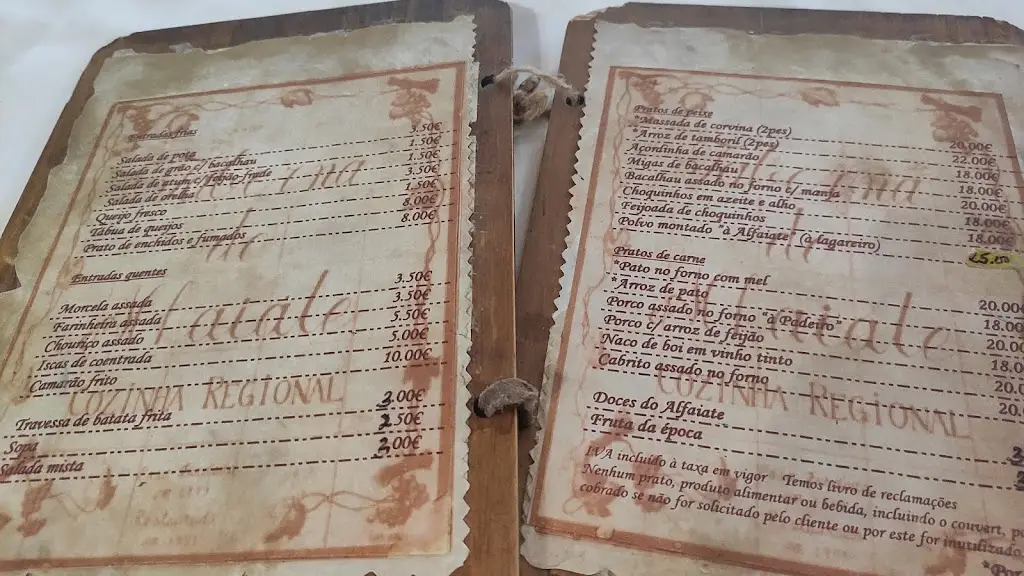 Entradas frias
Salada de polvo 3.50€
Salada de grão c/ bacalhau 1.50€
Salada de feijão-frade 1.50€
Salada de orelha 3.50€
Queijo fresco 1.50€
Tábua de queijos 8.00€
Prato de enchidos e fumados 8.00€
Entradas quentes
Morcela assada 3.50€
Farinheira assada 3.50€
Chouriço assado 5.50€
Iscas de coentrada 5.00€
Camarão frito 10.00€
Travessa de batata frita 3.00€
Sopa 2.50€
Salada mista 3.00€
Alfaiate
COZINHA REGIONAL
Pratos de peixe
*Massada de corvina (2pes) 20.00€
*Arroz de tamboril (2pes) 22.00€
Açordinha de camarão 18.00€
Migas de bacalhau 18.00€
Bacalhau assado no forno c/ manja 20.00€
Choquinhos em azeite e alho 18.00€
Feijoada de choquinhos 18.00€
Polvo montado "à Alfaiate (à lagareiro)
Pratos de carne
*Pato no forno com mel 20.00
*Arroz de pato 18.00
Porco assado no forno "à Padeiro" 20.0
Porco c/ arroz de feijão 18.0
Naco de boi em vinho tinto 20.
Cabrito assado no forno 20.
Doces do Alfaiate
Fruta da época
Alfaiate
COZINHA REGIONAL
IVA incluído à taxa em vigor Temos livro de reclamações
Nenhum prato, produto alimentar ou bebida, incluindo o couvert, p
cobrado se não for solicitado pelo cliente ou por este for inutilizado
*Por